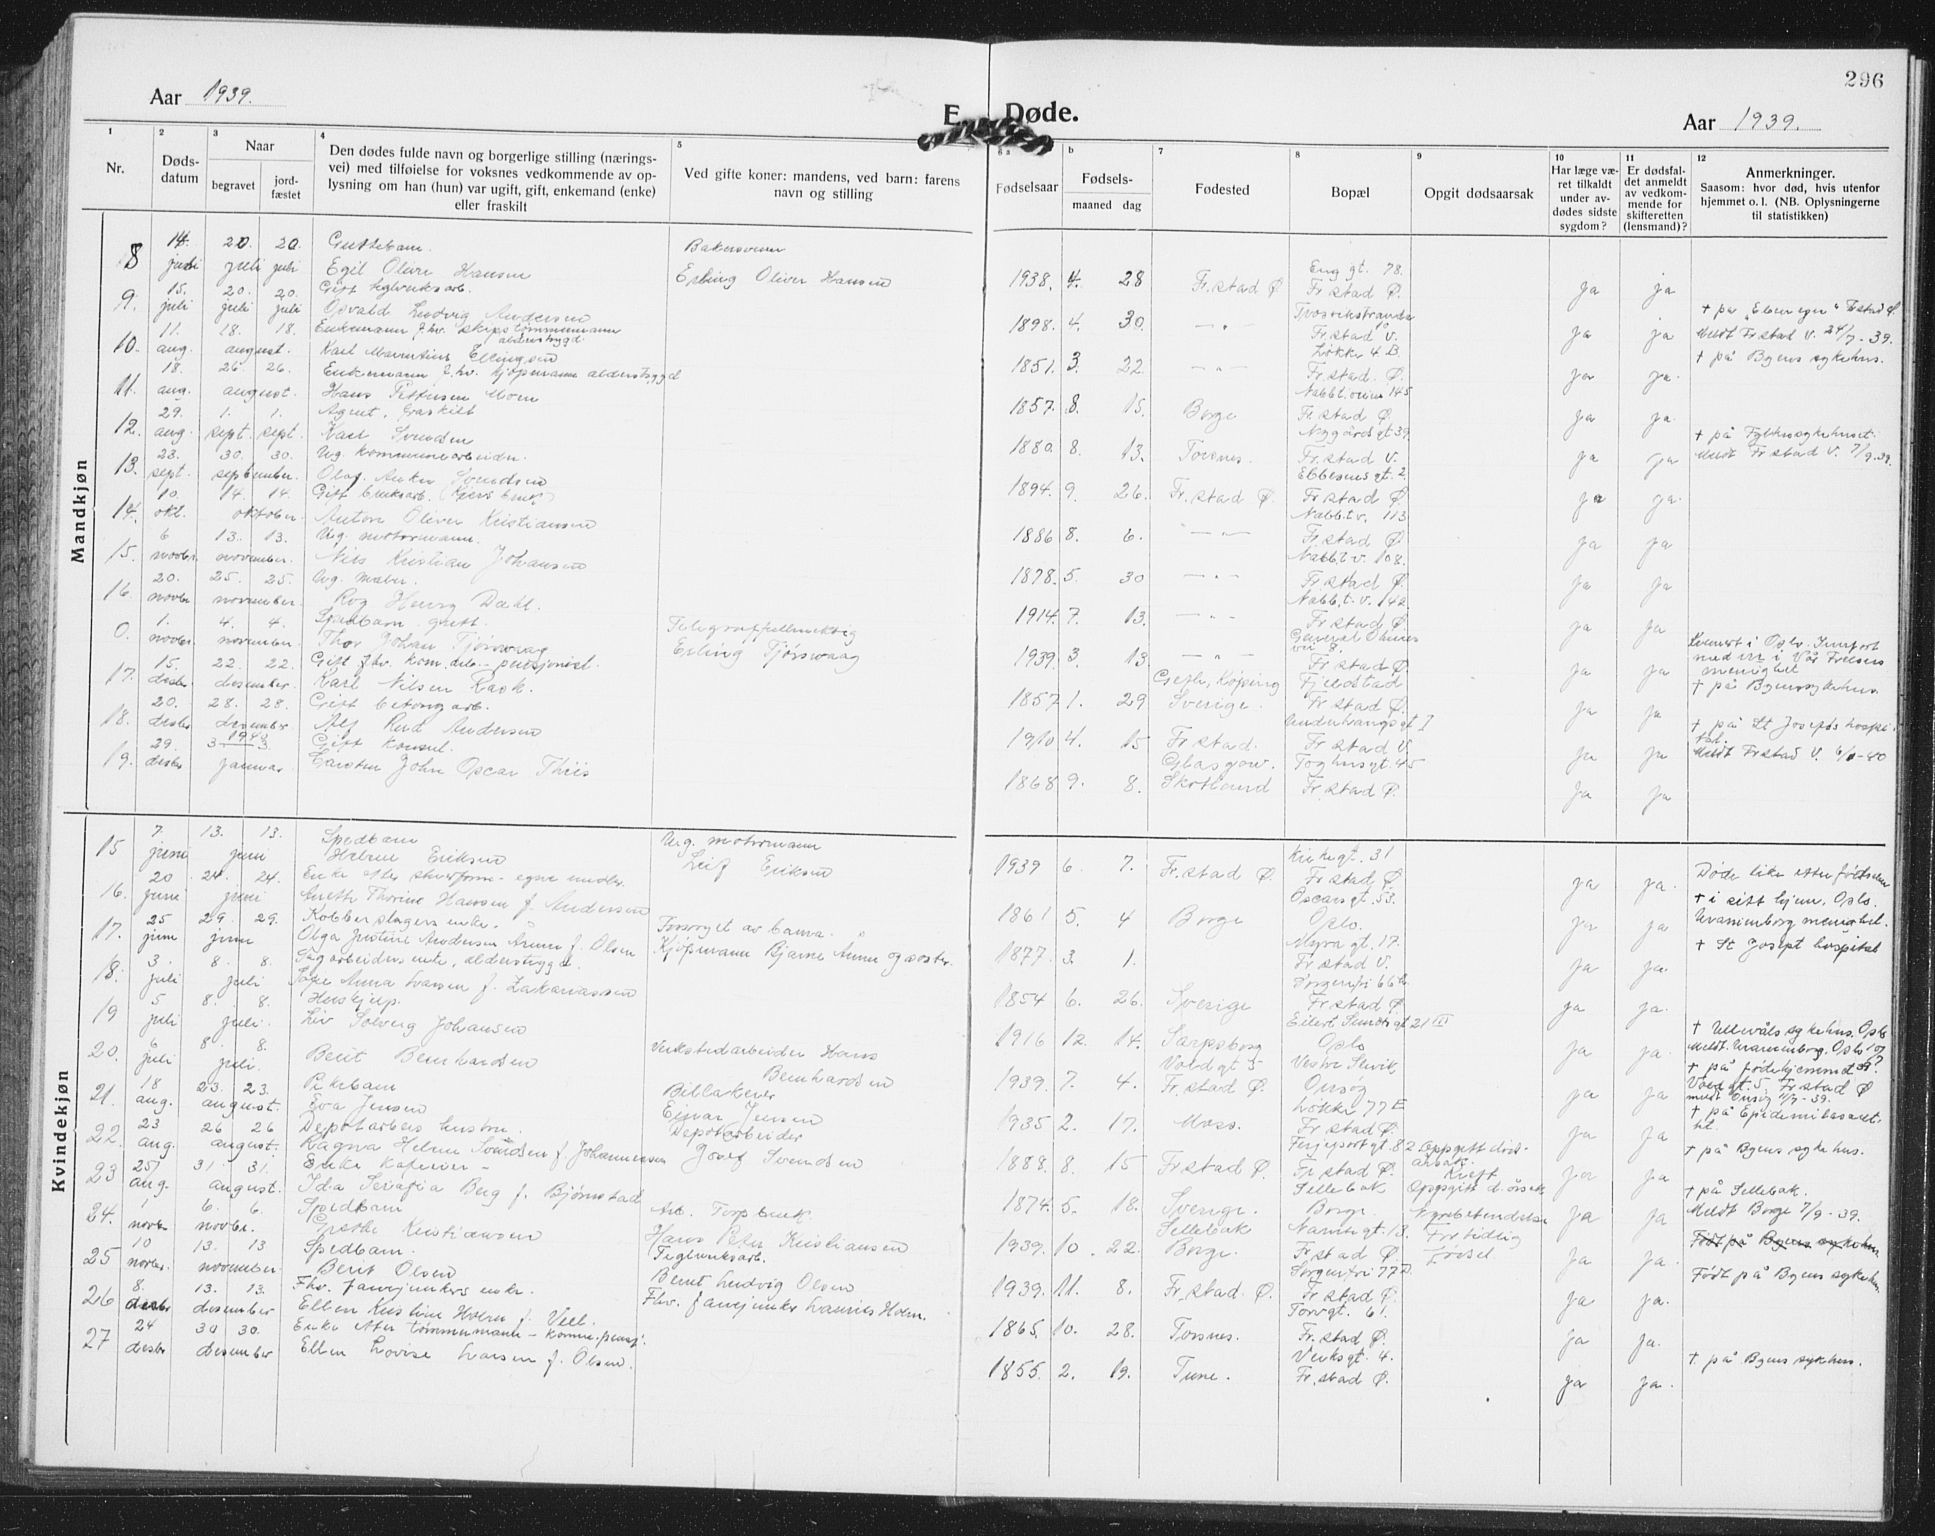 296
Aar 1939.
E. Døde.
Aar 1939.
1 2 3 4 5 6 a b 7 8 9 10 11 12
Nr.
Døds-
datum
Naar
begravet
jord-
fæstet
Den dødes fulde navn og borgerlige stilling (nærings-
vei) med tilføielse for voksnes vedkommende av op-
lysning om han (hun) var ugift, gift, enkemand (enke)
eller fraskilt
Ved gifte koner: mandens, ved barn: farens
navn og stilling
Fødselsaar
Fødsels-
maaned dag
Fødested
Bopæl
Opgit dødsaarsak
Har læge væ-
ret tilkaldt
under av-
dødes sidste
sygdom?
Er dødsfal-
det anmeldt
av vedkom-
mende for
skifteretten
(lensmand)?
Anmerkninger.
Saasom: hvor død, hvis utenfor
hjemmet o. l. (NB. Oplysningerne
til statistikken)
Mandkjøn
14. 20. 20. Guttebarn. Bakersvenn Eng gt. 78.
8 juli juli Egil Oliver Hansen Erling Oliver Hansen 1938. 4. 28 Fr.stad Ø Fr.stad Ø. ja ja
15. 20. 20. Gift teglverksarb.
9. juli juli juli Osvald Ludvig Andersen 1898. 4. 30. — " — Fr.stad V. ja ja Meldt Fr.stad V. 24/7-39.
11. 18. 18. Enkemann fhv. skipstømmermann alderstrygd. Løkke 4 B.
10. aug. august. Karl Marentius Ellingsen 1851. 3. 22. — " — Fr.stad. Ø. ja ja. + på Byens sykehus.
18. 26. 26. Enkemann fhv. kjøpmann alderstrygd 145
11. aug. august. Hans Pettersen Moen 1857. 8. 15. Borge Fr.stad Ø. ja ja.
29. 1. 1. Agent, fraskilt Nygårdsgt 39.
12. aug. sept. sept. Karl Svendsen 1880. 8. 13. Torsnes. Fr.stad V. ja ja + på Fylkessykehuset. Meldt Fr.stad V. 7/9.39.
23. 30. 30. Ug. kommunearbeider. Ebbesens gt. 2.
13. sept. september. Olaf Anker Svendsen 1894. 9. 26. Fr.stad Ø. Fr.stad Ø. ja ja.
10. 14. 14. Gift Nabbtv. 113
14. okt. oktober. Anton Oliver Kristiansen 1886 8. 6. — " — Fr.stad Ø ja ja
6 13. 13. Ug. motormann. Nabbt v. 108.
15. novbr. november. Nils Kristian Johansen 1878. 5. 30 — " — Fr.stad Ø. ja ja
20. 25. 25. Ug. maler. Nabbt. v. 142.
16. novbr november. Roy Henry Dahl. 1914. 7. 13. — " — Fr.stad Ø. ja ja
1. 4. 4. Spedbarn gutt. Telegraffullmektig
0. novbr. november. Thor Johan Tjørswaag Erling Tjørswaag 1939. 3. 13. — " — Fr.stad Ø. ja ja menighet
15. 22. 22. Gift fhv. kom.arb. - pensjonist. Køping Fjeldstad
17. desbr desember. Karl Nilsen Rask. 1857 1. 29 Sverige. Fr.stad Ø. ja ja + på Byenssykehus.
20. 28. 28. Gift betongarb.
18. desbr desember Alf Rud Andersen 1910 4. 15 Fr.stad. Fr.stad V. ja ja + på St. Josefs hospital. Meldt Fr.stad V.
29. 3 1940 3. Gift konsul. Glasgow. Toghusgt. 45
19. desbr januar. Carsten John Oscar Thiis 1868 9. 8. Skotland Fr.stad Ø. ja ja
Kvindekjøn
7. 13. 13. Spedbarn Ug. motormann Kirkegt. 31
15 juni juni Helene Eriksen Leif Eriksen 1939 6. 7. Fr.stad Ø. Fr.stad Ø. ja ja. Døde like efter fødselen
20 24. 24. Enke efter - egne midler. Oscarsgt. 53.
16. juni juni Anette Thorine Hansen f. Andersen 1861 5. 4 Borge Oslo. ja ja + i sitt hjem. Oslo. Uranienborg menighet.
25 29. 29. Kobberslagers enke. Forsørget av barna. Myra gt. 17.
17. juni juni Olga Justine Andersen Årum f. Olsen Kjøpmann Bjarne Årum og søster. 1877. 3. 1. Fr.stad V. ja ja. + St. Josept hospital
3. 8. 8. Sagarbeiders enke, alderstrygd.
18. juli juli Anna Larsen f. Zakariassen 1854 6. 26. Sverige Fr.stad Ø. ja ja.
5 8. 8. Huskjup. Eilert Sundts gt 21 III
19 juli juli. Liv Solveig Johansen 1916 12. 14. Sarpsborg Oslo ja ja. + Ullevåls sykehus. Oslo Meldt. Uranienborg. Oslo
6 8. 8. Verkstedarbeider Hans Voldgt 5
20. juli juli. Berit Bernhardsen Bernhardsen 1939. 7. 4. Fr.stad Ø. Onsøy ja ja + på fødehjemmet Voldgt. 5. Fr.stad Ø
18 23. 23. Pikebarn Billakerer Løkke 77E
21. aug. august. Eva Jensen Einar Jensen 1935 2. 17. Moss. Fr.stad Ø ja ja
23 26 26 Depotarbeiders hustru. Depotarbeider 82
22. aug. august. Ragna Helene Svendsen f. Johannessen Josef Svendsen 1888. 8. 15 Fr.stad Ø. Fr.stad Ø. Kreft ja ja + på Byens sykehus.
25 31 31. Enke Sellebak
23 aug. august. Ida Serafia Berg f. Bjørnstad 1874. 5. 18. Sverige. Borge. Nyrebetendelse ja ja + på Sellebak. Meldt Borge 7/9-39.
1 6. 6. Spedbarn Arb. Torp bruk. Sellebak
24. novbr novbr. Grethe Kristiansen Hans Peter Kristiansen 1939. 10. 22. Borge. Fr.stad Ø. For tidlig født. ja ja. Født på Byens sykehus.
10 13. 13 Spedbarn. Teglverksarb. Sorgenfri 77 D.
25 novbr. november. Berit Olsen Bernt Ludvig Olsen 1939. 11. 8. Fr.stad. Ø. Fr.stad Ø. ja ja. Født på Byens sykehus.
8. 13. 13. Fhv. enke. Fhv. Laurits Holm. Torvgt. 61.
26 desbr desember Ellen Kristine Holm f. Vell. 1865. 10. 28. Torsnes. Fr.stad Ø. ja ja.
24 30 30. Enke etter tømmermann - komm. pensj. Verksgt. 4.
27 desbr desember Ellen Lovise Larsen f. Olsen. 1855. 2. 19. Tune. Fr.stad Ø. ja ja. + på Byens sykehus.